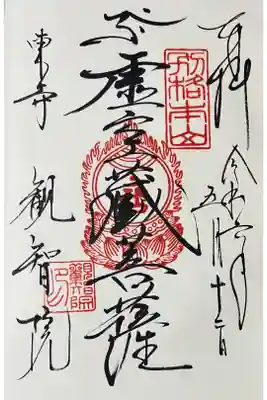 奉拝
令和六年
五月十二日
別格本山
五大虚空蔵菩薩
東寺
観智院